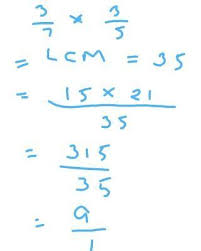 3/7 × 3/5
= LCM = 35
= 15 × 21 / 35
= 315 / 35
= 9 / 1